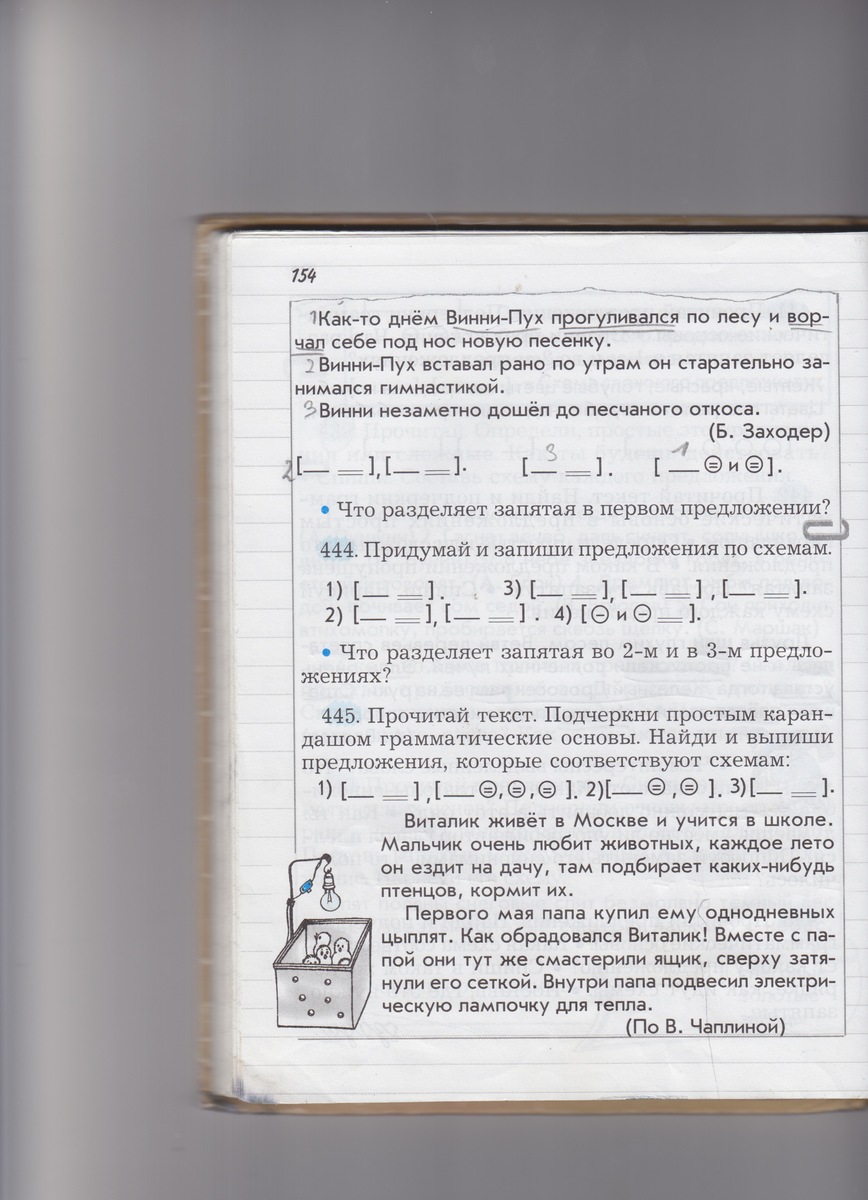 154
1 Как-то днём Винни-Пух прогуливался по лесу и вор-
чал себе под нос новую песенку.
2 Винни-Пух вставал рано по утрам он старательно за-
нимался гимнастикой.
3 Винни незаметно дошёл до песчаного откоса.
(Б. Заходер)
2 [— =], [— =]. 3 [— =]. 1 [— ⊜ и ⊜].
• Что разделяет запятая в первом предложении?
444. Придумай и запиши предложения по схемам.
1) [— =]. 3) [— =], [— =], [— =].
2) [— =], [— =]. 4) [⊖ и ⊖ =].
• Что разделяет запятая во 2-м и в 3-м предло-
жениях?
445. Прочитай текст. Подчеркни простым каран-
дашом грамматические основы. Найди и выпиши
предложения, которые соответствуют схемам:
1) [— =], [— ⊜, ⊜, ⊜]. 2) [— ⊜, ⊜]. 3) [— =].
Виталик живёт в Москве и учится в школе.
Мальчик очень любит животных, каждое лето
он ездит на дачу, там подбирает каких-нибудь
птенцов, кормит их.
Первого мая папа купил ему однодневных
цыплят. Как обрадовался Виталик! Вместе с па-
пой они тут же смастерили ящик, сверху затя-
нули его сеткой. Внутри папа подвесил электри-
ческую лампочку для тепла.
(По В. Чаплиной)